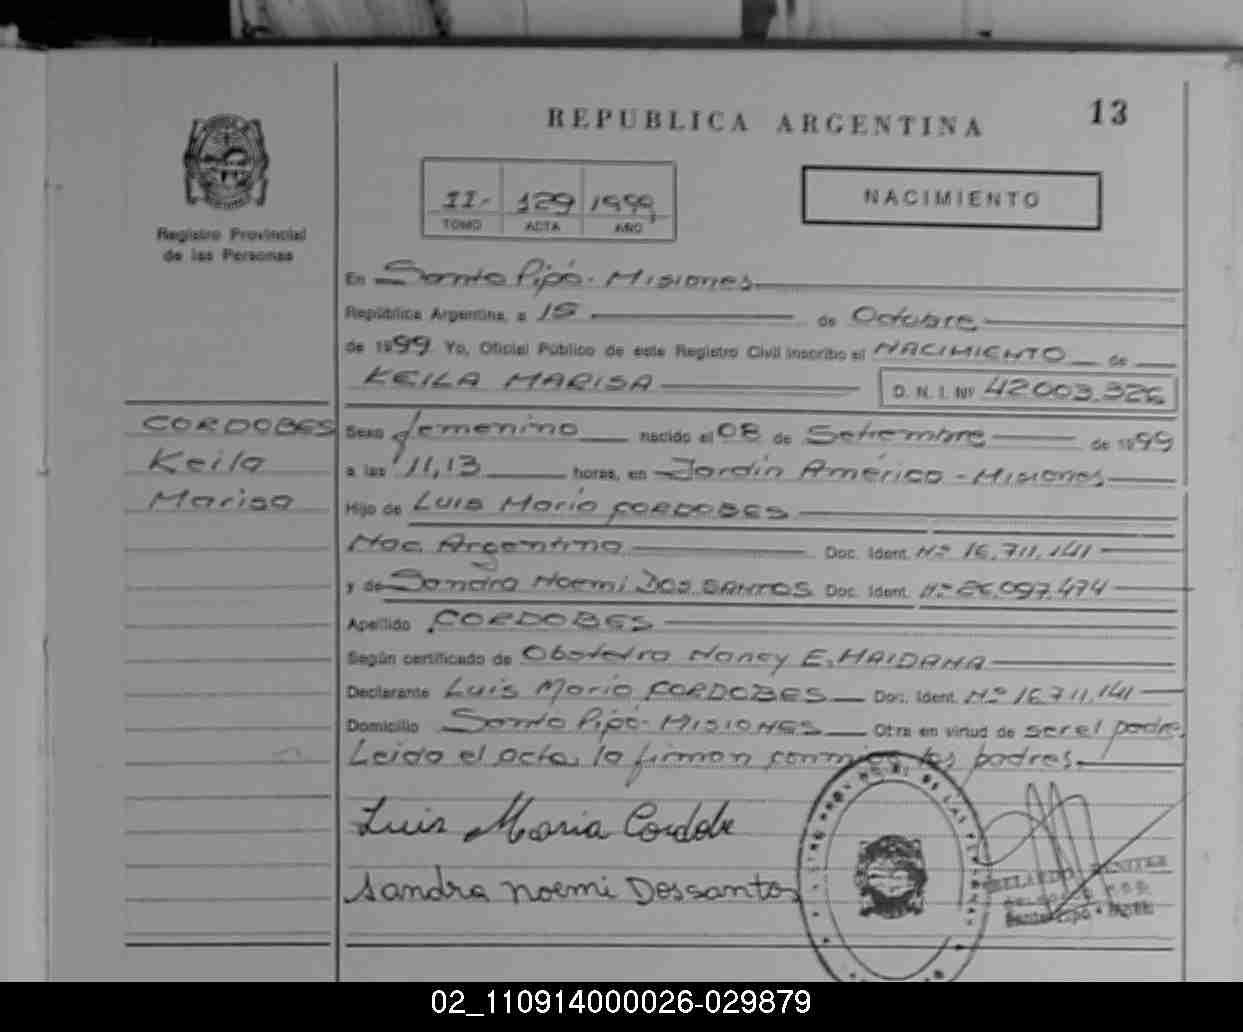 REPUBLICA ARGENTINA
13
Registro Provincial
de las Personas
II- 129 1999
TOMO ACTA AÑO
NACIMIENTO
En Santo Pipó - Misiones
República Argentina, a 15 de Octubre
de 1999 Yo, Oficial Público de este Registro Civil inscribo el NACIMIENTO de
KEILA MARISA D. N. I. Nº 42.003.326
CORDOBES
Keila
Marisa
Sexo femenino nacido el 08 de Setiembre de 1999
a las 11,13 horas, en Jardín América - Misiones
Hijo de Luis María CORDOBES
Nac. Argentino Doc. Ident. Nº 16.711.141
y de Sandra Noemi DOS SANTOS Doc. Ident. Nº 26.097.474
Apellido CORDOBES
Según certificado de Obstetra Nancy E. MAIDANA
Declarante Luis María CORDOBES Doc. Ident. Nº 16.711.141
Domicilio Santo Pipó - MISIONES Otra en virtud de ser el padre.
Leida el acta, la firman conmigo los padres.
Luis Maria Cordobe
Sandra Noemi Dossantos
DE LAS
Santo Pipó
02_110914000026-029879